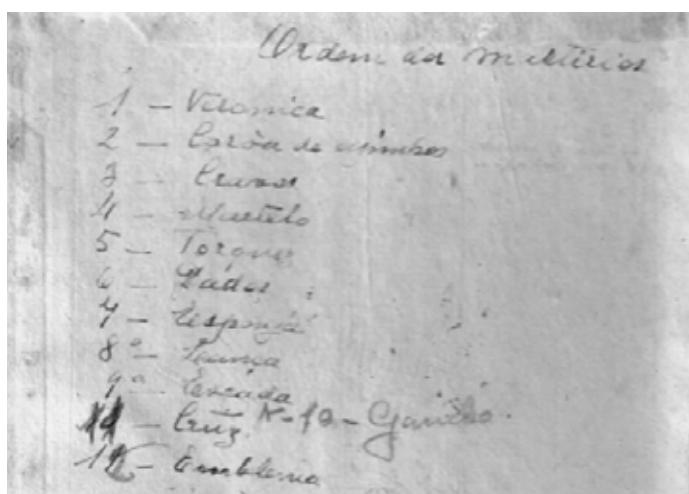 Ordem dos misterios
1 – Veronica
2 – Corôa de espinhos
3 – Cravos
4 – Martelo
5 – Torques
6 – Dados
7 – Esponja
8º – Lança
9º – Escada
11 – Cruz Nº 10 – Garrão.
12 – Emblema